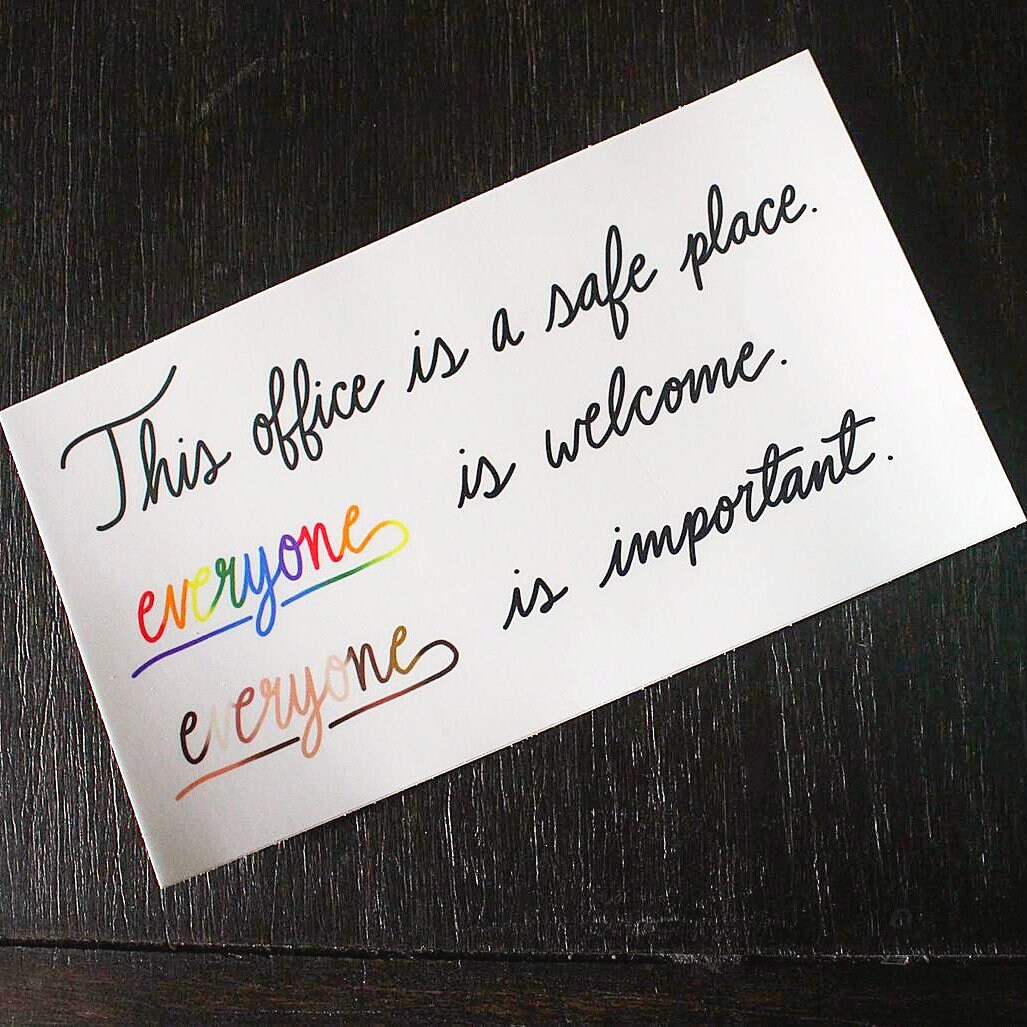 This office is a safe place.
everyone is welcome.
everyone is important.